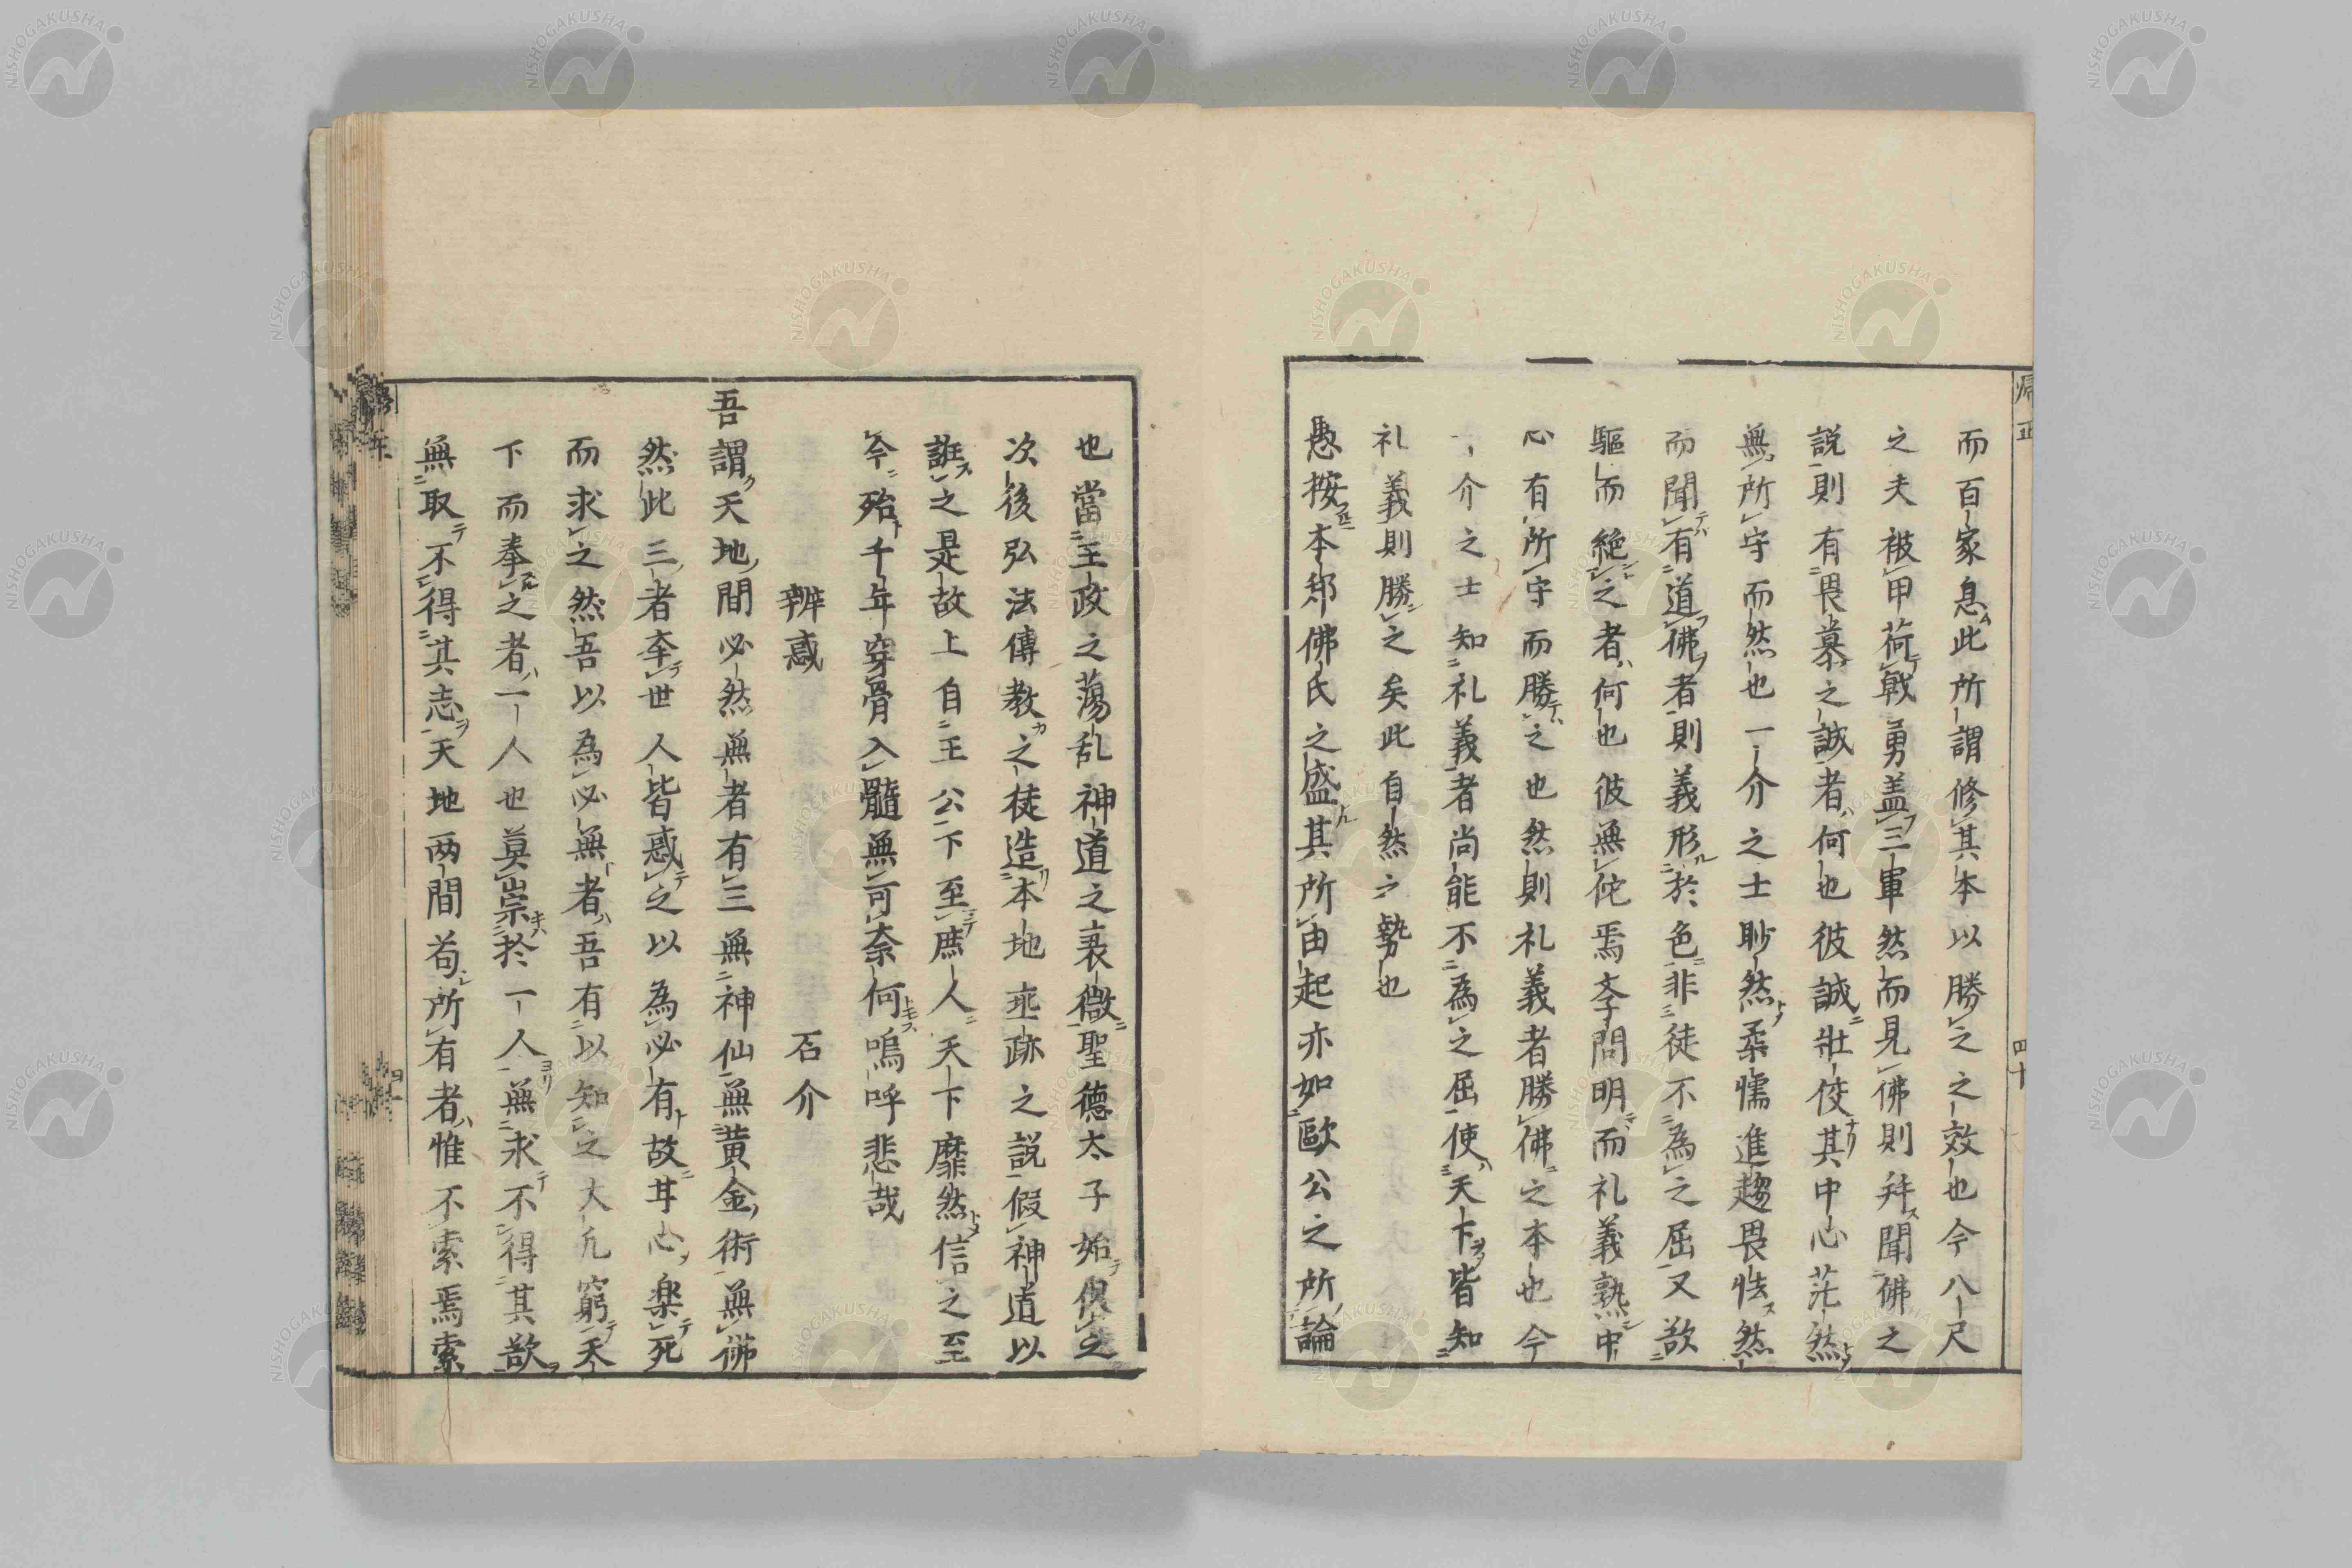 而百家息此所謂修其本以勝之之效也今八尺
之夫被甲荷戟勇盖三軍然而見佛則拜聞佛之
説則有畏慕之誠者何也彼誠壮佼其中心茫然
無所守而然也一介之士眇然柔懦進趨畏怯然
而聞有道佛者則義形於色非徒不為之屈又欲
驅而絶之者何也彼無佗焉斈問明而礼義熟中
心有所守而勝之也然則礼義者勝佛之本也今
一介之士知礼義者尚能不為之屈使天下皆知
礼義則勝之矣此自然之勢也
愚按本邦佛氏之盛其所由起亦如歐公之所論
也當王政之蕩乱神道之衰微聖德太子始倡之
次後弘法傳教之徒造本地垂跡之説假神道以
誑之是故上自王公下至庶人天下靡然信之至
今殆千年穿骨入髓無可奈何嗚呼悲哉
辨惑 石介
吾謂天地間必然無者有三無神仙無黄金術無佛
然此三者夲世人皆惑之以為必有故甘心楽死
而求之然吾以為必無者吾有以知之大凢窮天
下而奉之者一人也莫崇於一人無求不得其欲
無取不得其志天地両間苟所有者惟不索焉索
歸正 四十
NISHOGAKUSHA